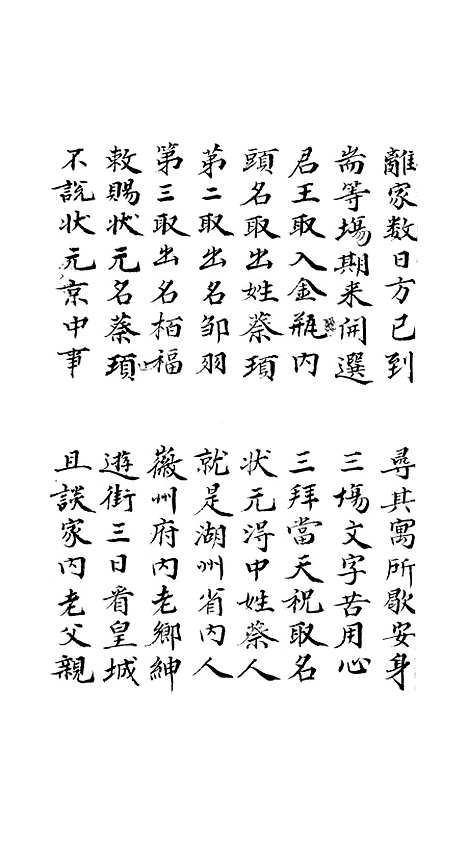 離家数日方已到 尋其寓所歇安身
耑等塲期来開選 三塲文字苦用心
君王取入金瓶内 三拜當天祝取名
頭名取出姓蔡頊 状元淂中姓蔡人
第二取出名邹羽 就是湖州省内人
第三取出名栢福 薇州府内老鄉紳
敕賜状元名蔡頊 遊街三日看皇城
不說状元京中事 且談家内老父親